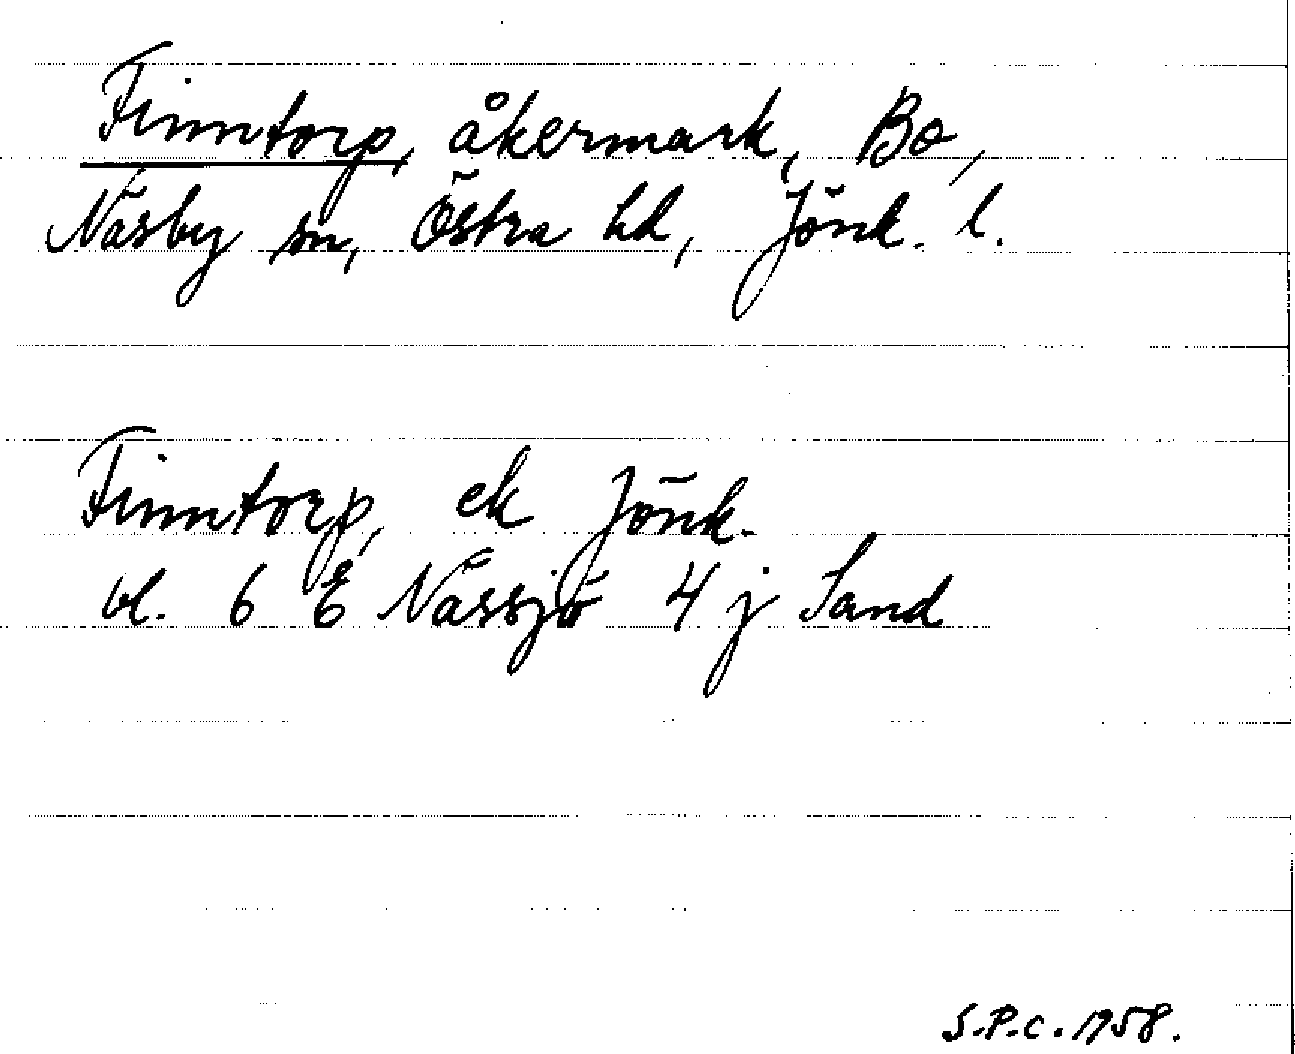 Finntorp, åkermark, Bo,
Näsby sn, Östra hd, Jönk. l.
Finntorp, ek Jönk.
bl. 6 Nässjö 4 j Sand
S.P.C. 1958.